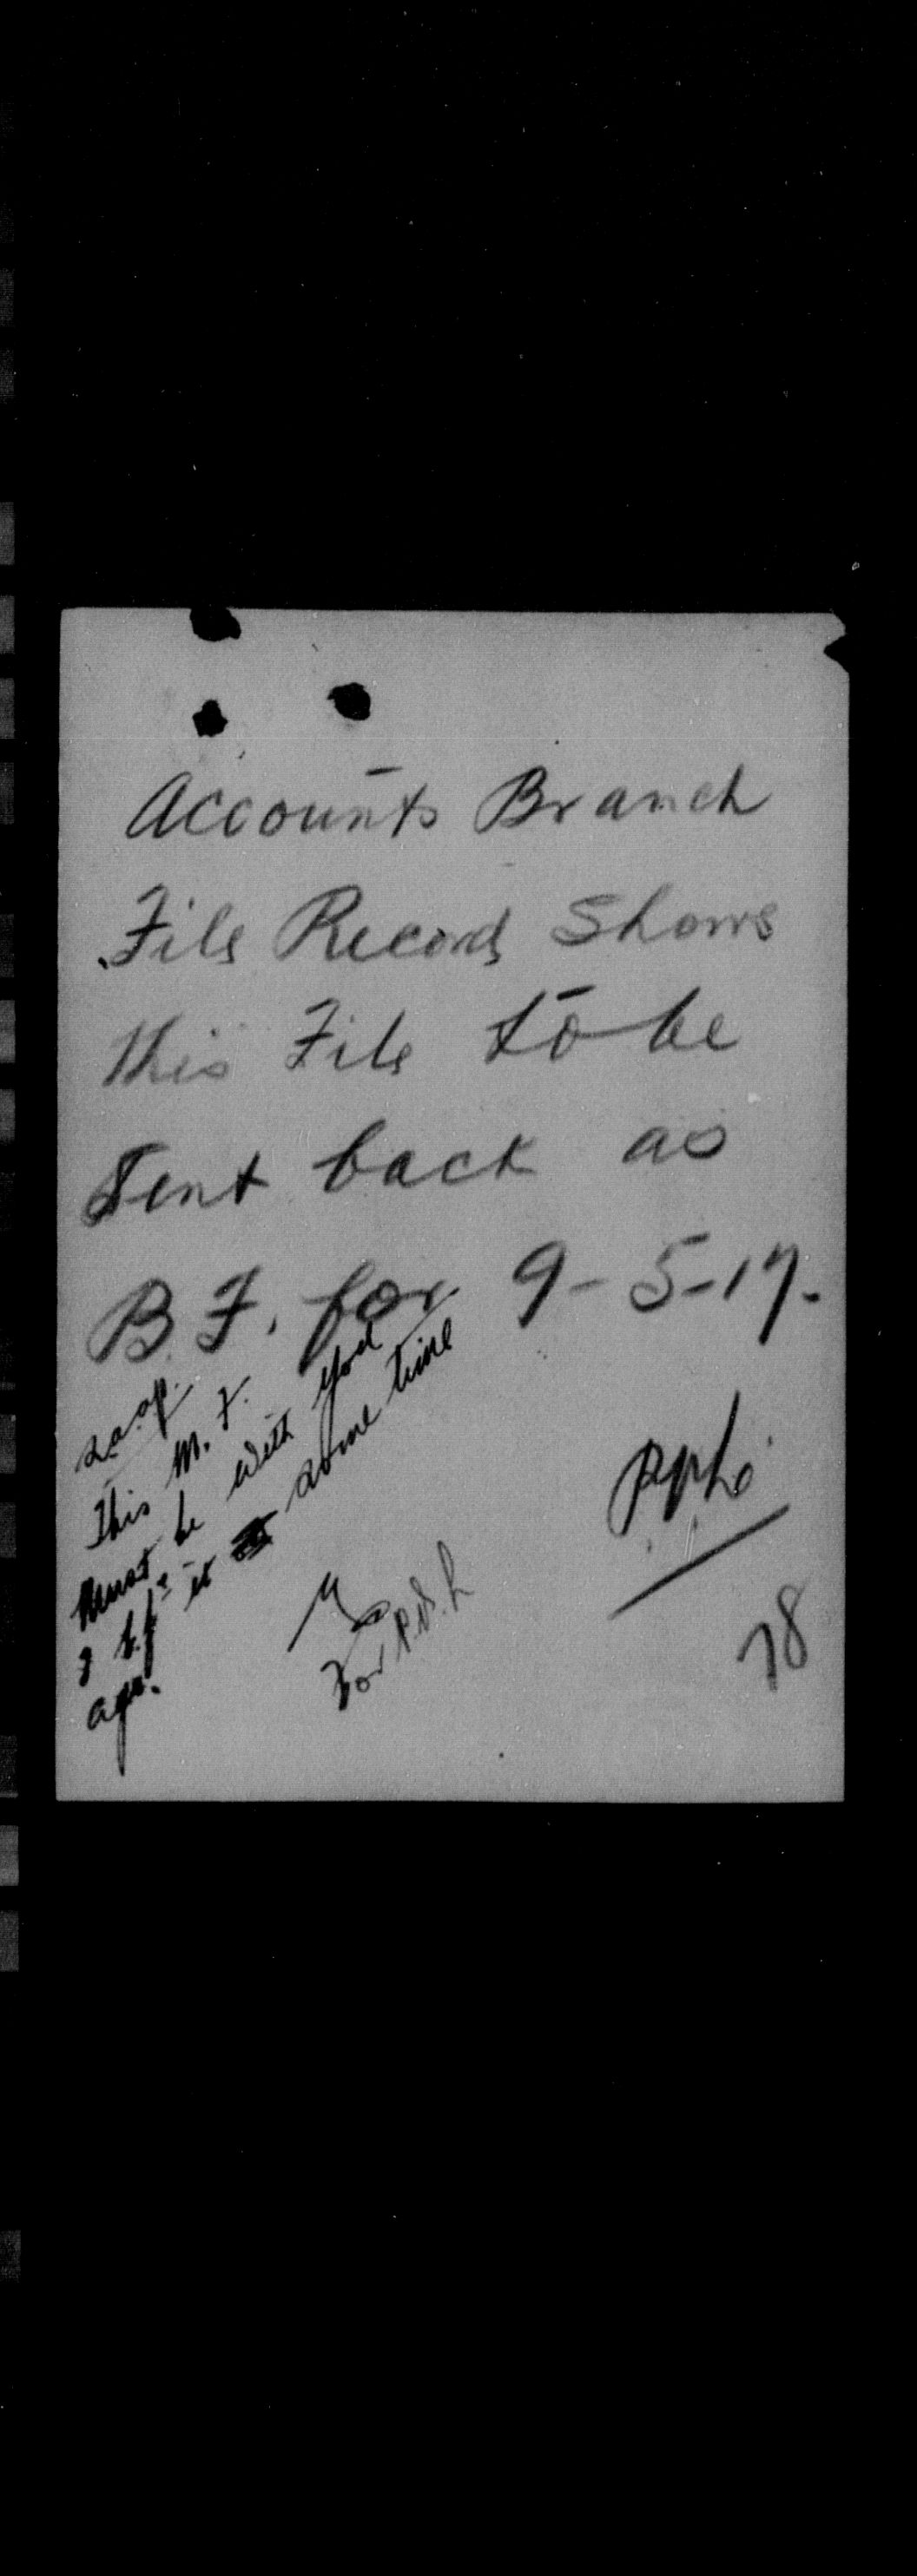 Accounts Branch
File Record Shows
this File to be
Sent back as
B.F. for 9-5-17.
This M.F.
Must be with you
I b.f. it some time
ago.
For
78